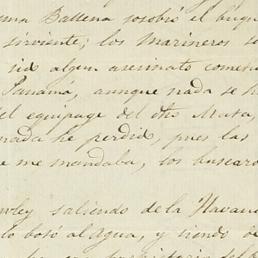 una Ballena sosobró el buqu
sirviente; los Marineros se
sid algun asesinato comet
Panamá, aunque nada se h
del equipage del dho Mata,
nada he perdido, pues las
e me mandaba, los buscaro
wley saliendo de la Havana
lo botó al Agua, y siendo